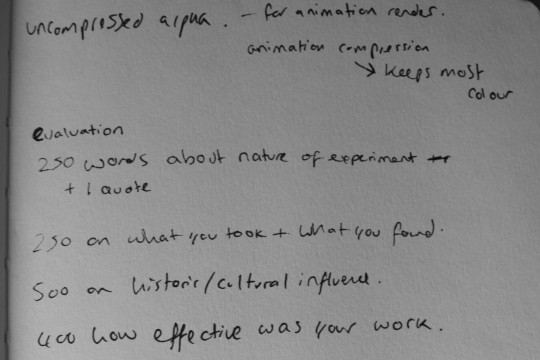 uncompressed alpha. - for animation render.
animation compression
→ Keeps most
colour
evaluation
250 words about nature of experiment
+ 1 quote
250 on what you took + what you found.
500 on historic/cultural influence.
400 how effective was your work.